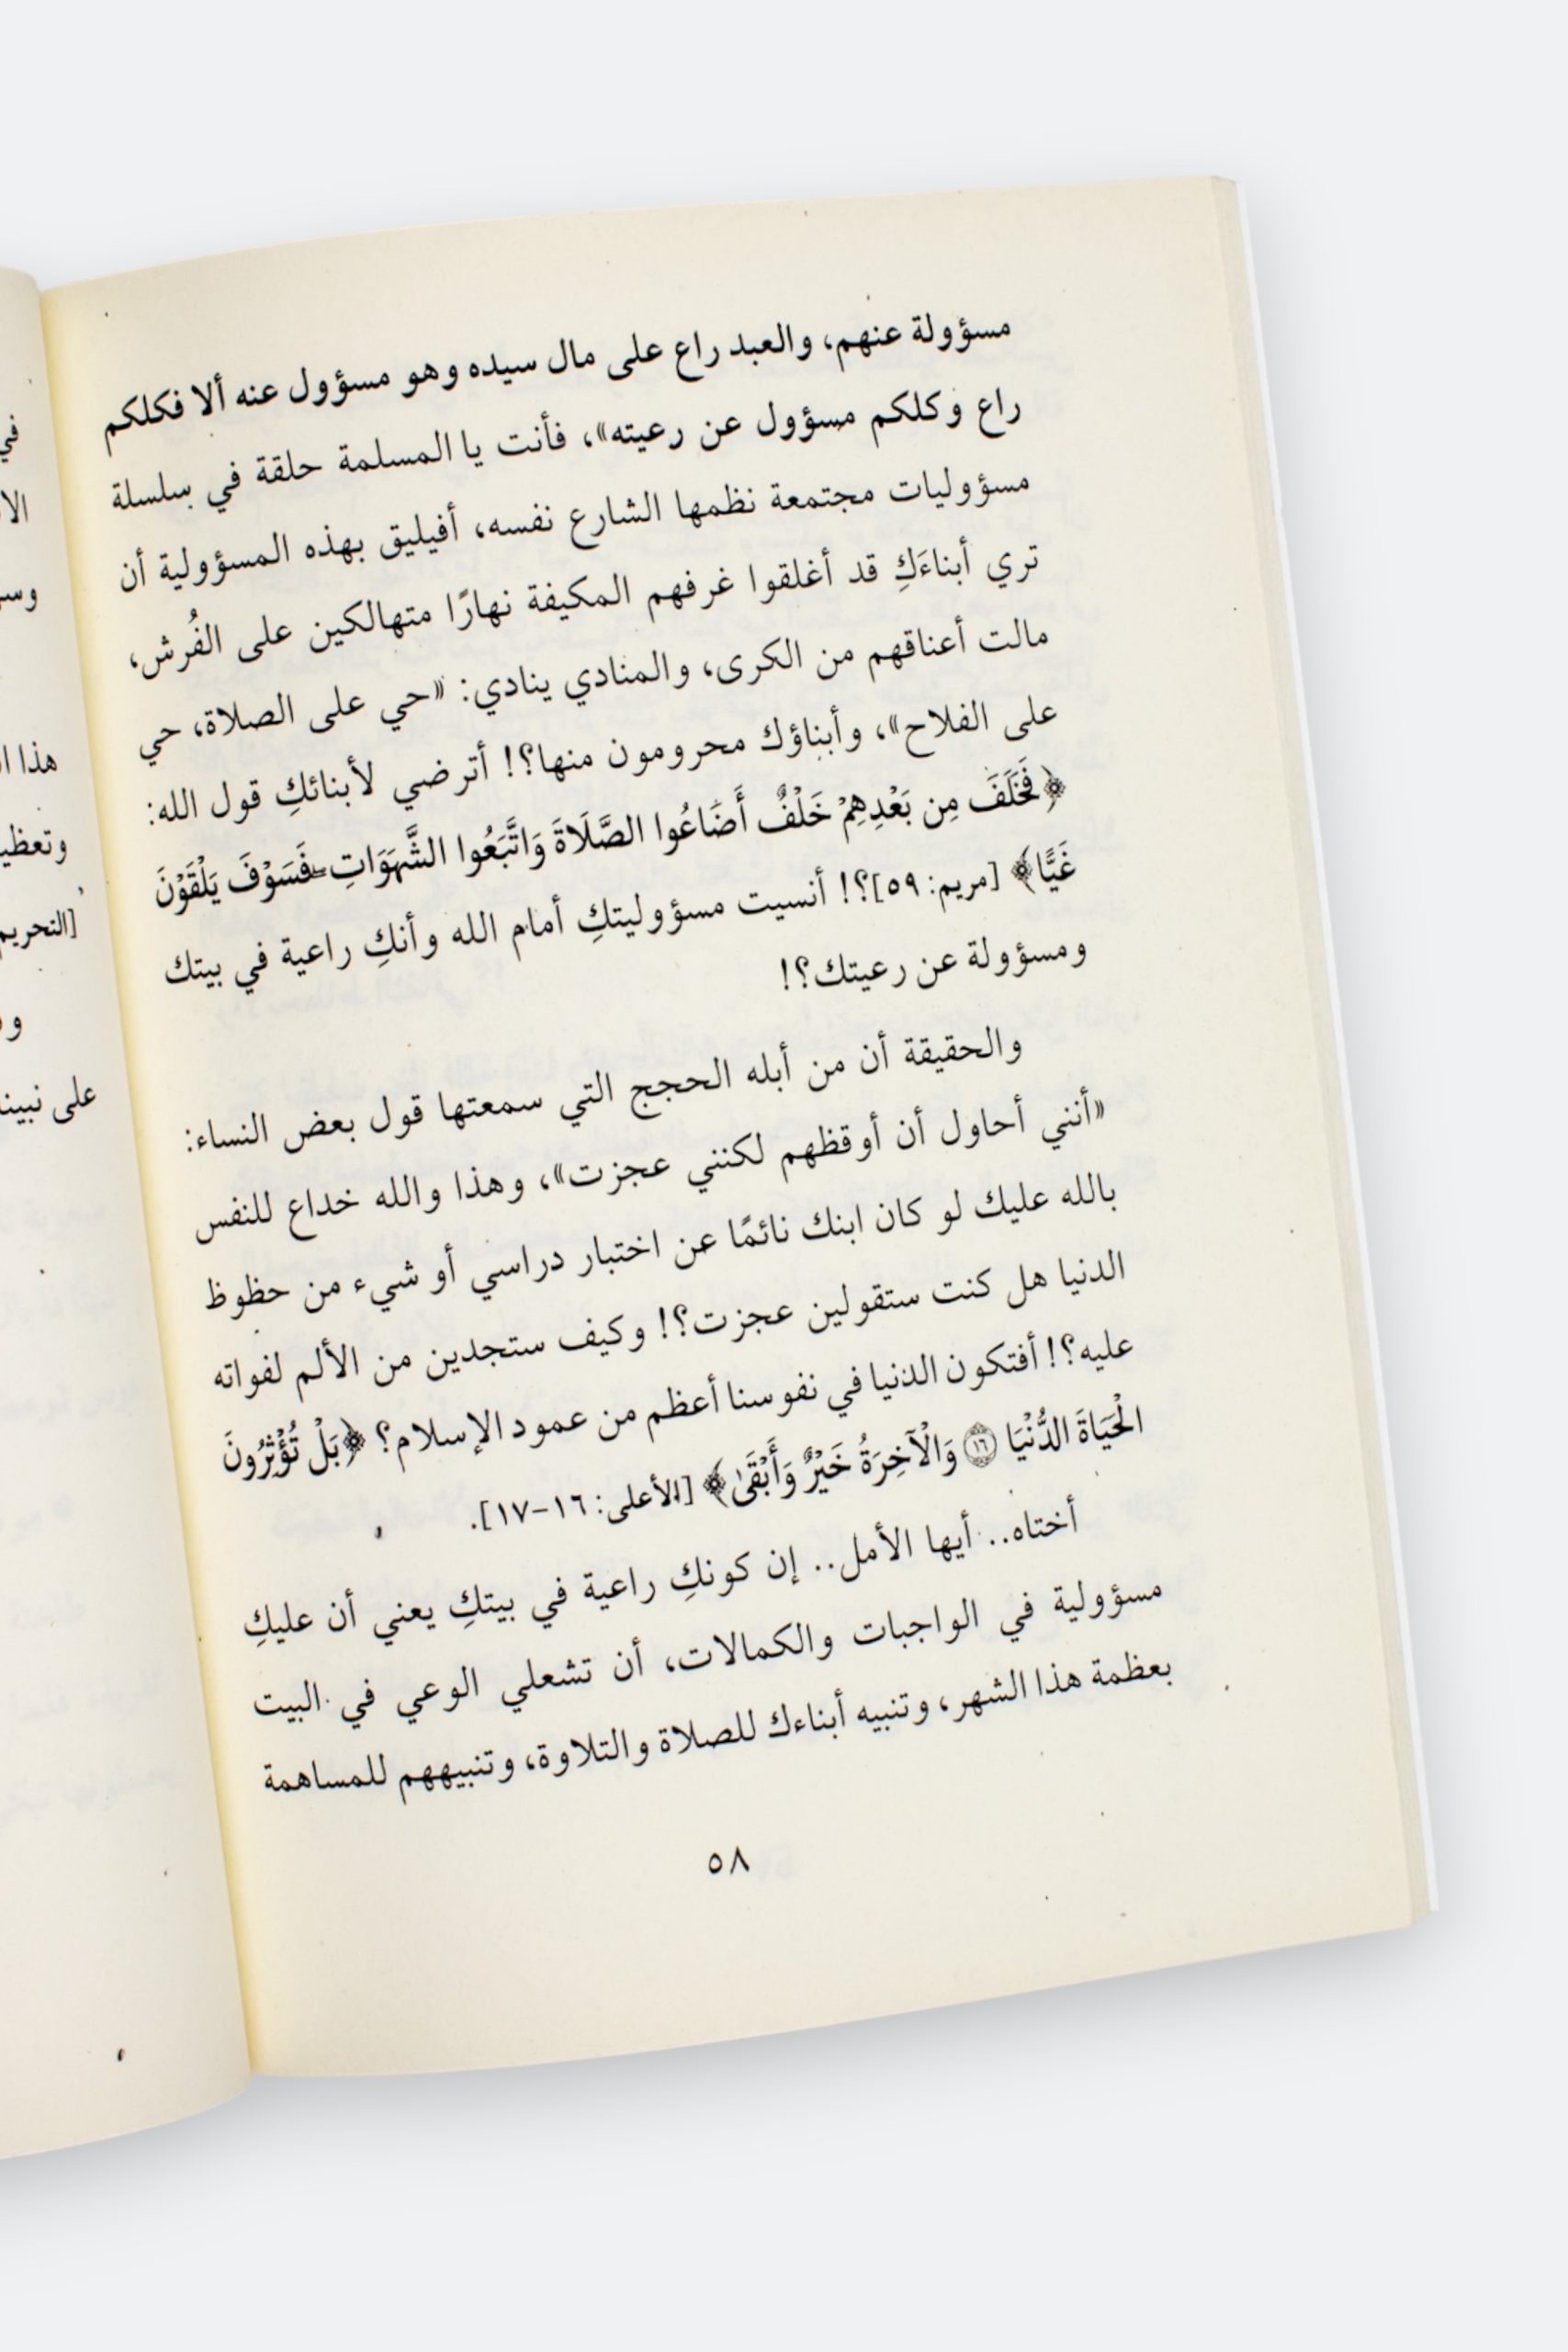 مسؤولة عنهم، والعبد راع على مال سيده وهو مسؤول عنه ألا فكلكم
راع وكلكم مسؤول عن رعيته»، فأنت يا المسلمة حلقة في سلسلة
مسؤوليات مجتمعة نظمها الشارع نفسه، أفيليق بهذه المسؤولية أن
تري أبناءَكِ قد أغلقوا غرفهم المكيفة نهارًا متهالكين على الفُرش،
مالت أعناقهم من الكرى، والمنادي ينادي: «حي على الصلاة، حي
على الفلاح»، وأبناؤك محرومون منها؟! أترضي لأبنائكِ قول الله:
﴿فَخَلَفَ مِن بَعْدِهِمْ خَلْفٌ أَضَاعُوا الصَّلَاةَ وَاتَّبَعُوا الشَّهَوَاتِ فَسَوْفَ يَلْقَوْنَ
غَيًّا﴾ [مريم: ٥٩]؟! أنسيت مسؤوليتكِ أمام الله وأنكِ راعية في بيتك
ومسؤولة عن رعيتك؟!
والحقيقة أن من أبله الحجج التي سمعتها قول بعض النساء:
«أنني أحاول أن أوقظهم لكنني عجزت»، وهذا والله خداع للنفس
بالله عليك لو كان ابنك نائمًا عن اختبار دراسي أو شيء من حظوظ
الدنيا هل كنت ستقولين عجزت؟! وكيف ستجدين من الألم لفواته
عليه؟! أفتكون الدنيا في نفوسنا أعظم من عمود الإسلام؟ ﴿بَلْ تُؤْثِرُونَ
الْحَيَاةَ الدُّنْيَا ١٦ وَالْآخِرَةُ خَيْرٌ وَأَبْقَىٰ﴾ [الأعلى: ١٦-١٧].
أختاه.. أيها الأمل.. إن كونكِ راعية في بيتكِ يعني أن عليكِ
مسؤولية في الواجبات والكمالات، أن تشعلي الوعي في البيت
بعظمة هذا الشهر، وتنبيه أبناءك للصلاة والتلاوة، وتنبيههم للمساهمة
٥٨
في
هذا
[التحريم
على نبينا